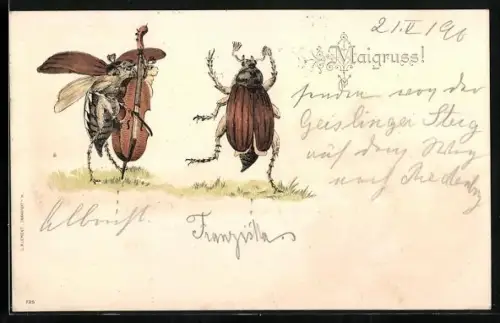 21.V 190
Maigruss!
senden von der
Geislinger Steig
auf dem Weg
nach
Albrecht.
Franziska